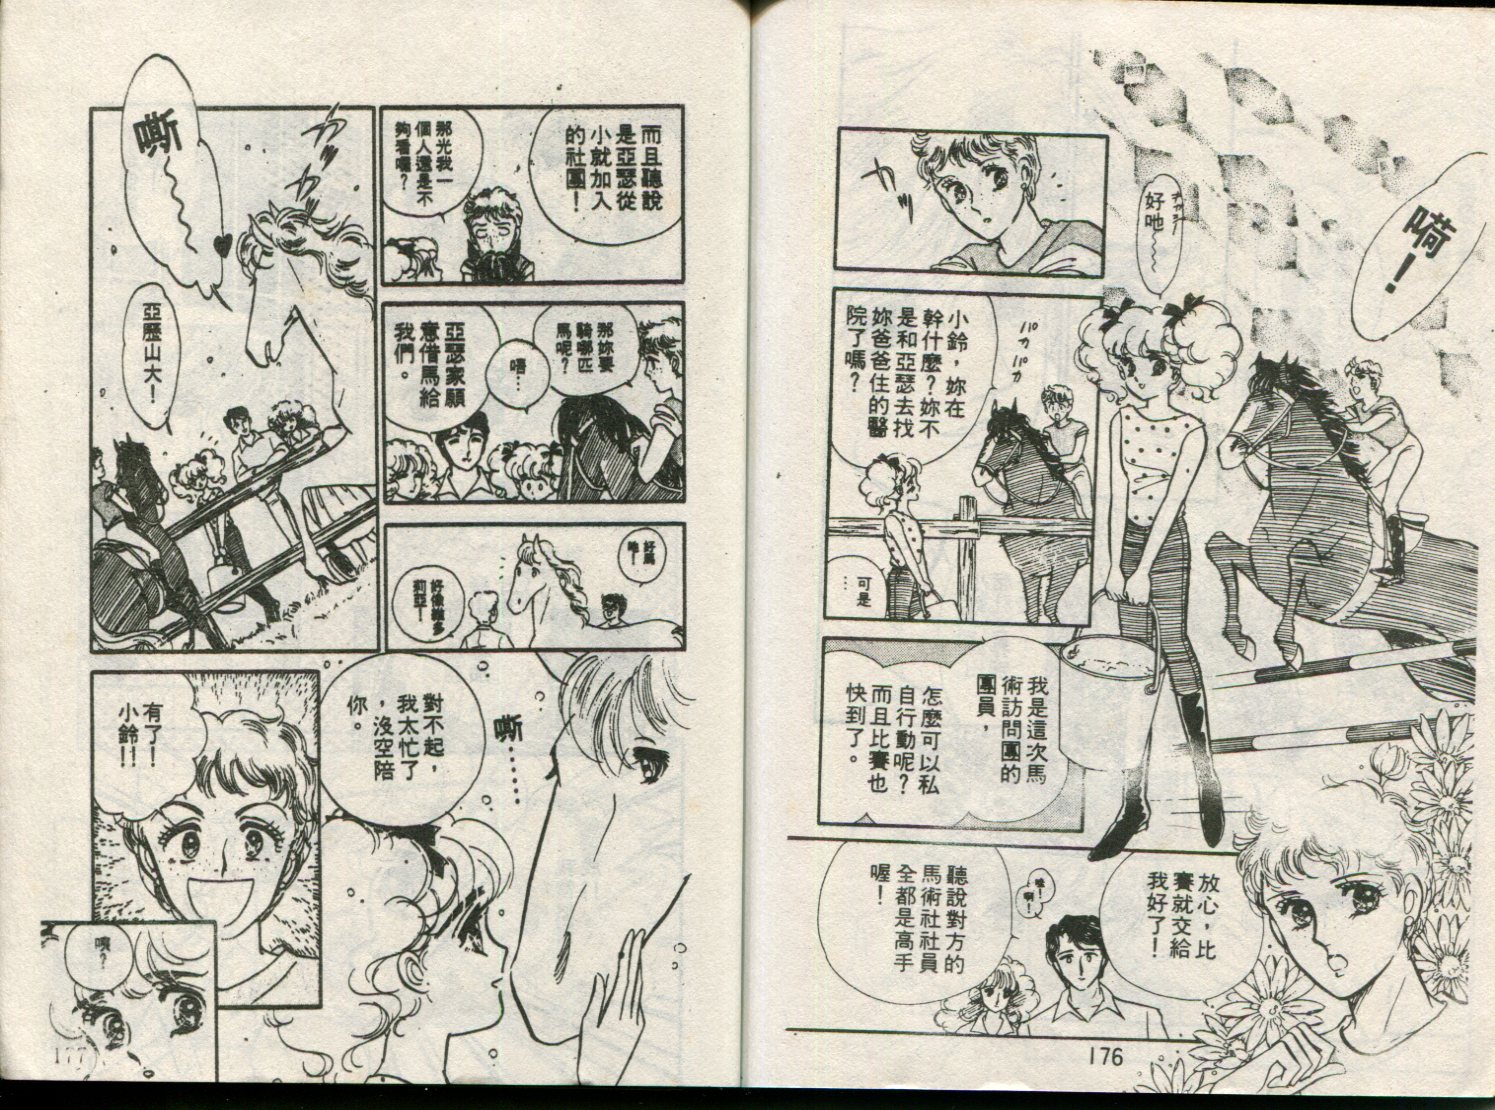 嗬！
好吔～～
カッ
小鈴，妳在
幹什麼？妳不
是和亞瑟去找
妳爸爸住的醫
院了嗎？
パカパカ
可是
…
我是這次馬
術訪問團的
團員，
怎麼可以私
自行動呢？
而且比賽也
快到了。
放心，比
賽就交給
我好了！
哇！
啊！
聽說對方的
馬術社社員
全都是高手
喔！
176
而且聽說
是亞瑟從
小就加入
的社團！
那光我一
個人還是不
夠看囉？
那妳要
騎哪匹
馬呢？
唔…
亞瑟家願
意借馬給
我們。
好馬
吔！
好像維多
莉亞！
嘶～～
亞歷山大！
嘶……
對不起，
我太忙了
，沒空陪
你。
有了！
小鈴！！
噢？
177